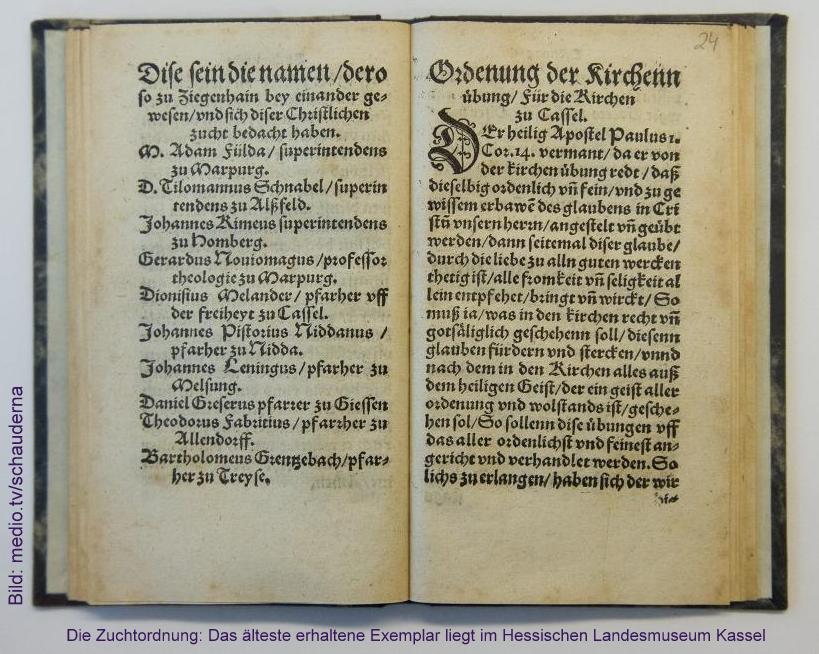 Dise sein die namen/dero
so zu Ziegenhain bey einander ge-
wesen/vnd sich diser Christlichen
zucht bedacht haben.
M. Adam Fulda/superintendens
zu Marpurg.
D. Tilomannus Schnabel/superin
tendens zu Alßfeld.
Johannes Kimeus superintendens
zu Homberg.
Gerardus Nouiomagus/professor
theologie zu Marpurg.
Dionisius Melander/pfarher vff
der freiheyt zu Cassel.
Johannes Pistorius Niddanus/
pfarher zu Nidda.
Johannes Leningus/pfarher zu
Melsung.
Daniel Greserus pfarrer zu Giessen
Theodorus Fabritius/pfarrher zu
Allendorff.
Bartholomeus Grentzebach/pfar-
her zu Treyse.
24
Ordenung der Kirchenn
übung/Für die Kirchen
zu Cassel.
DEr heilig Apostel Paulus 1.
Cor.14. vermant/da er von
der kirchen übung redt/daß
dieselbig ordenlich vñ fein/vnd zu ge
wissem erbawẽ des glaubens in Cri
stũ vnsern herrn/angestelt vñ geübt
werden/dann seitemal diser glaube/
durch die liebe zu alln guten wercken
thetig ist/alle fromkeit vñ seligkeit al
lein entpfehet/bringt vñ wirckt/So
muß ia/was in den kirchen recht vñ
gotsäliglich geschehenn soll/diesenn
glauben fürdern vnd stercken/vnnd
nach dem in den Kirchen alles auß
dem heiligen Geist/der ein geist aller
ordenung vnd wolstands ist/gesche-
hen sol/So sollenn dise übungen vff
das aller ordenlichst vnd feinest an-
gericht vnd verhandlet werden. So
lichs zu erlangen/haben sich der wir
Bild: medio.tv/schauderna
Die Zuchtordnung: Das älteste erhaltene Exemplar liegt im Hessischen Landesmuseum Kassel